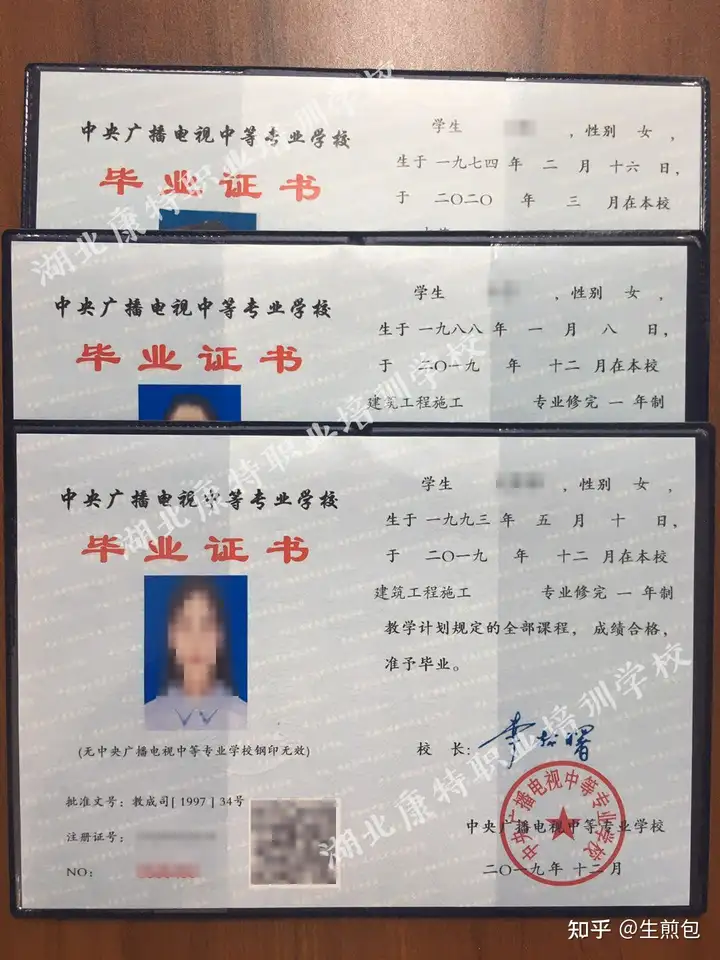 中央广播电视中等专业学校
毕业证书
学生 ，性别 女 ，
生于 一九七四 年 二 月 十六 日，
于 二〇二〇 年 三 月在本校
中央广播电视中等专业学校
毕业证书
学生 ，性别 女 ，
生于 一九八八 年 一 月 八 日，
于 二〇一九 年 十二 月在本校
建筑工程施工 专业修完 一 年制
中央广播电视中等专业学校
毕业证书
(无中央广播电视中等专业学校钢印无效)
批准文号：教成司[ 1997 ] 34号
注册证号：
NO：
学生 ，性别 女 ，
生于 一九九三 年 五 月 十 日，
于 二〇一九 年 十二 月在本校
建筑工程施工 专业修完 一 年制
教学计划规定的全部课程，成绩合格，
准予毕业。
校 长：
中央广播电视中等专业学校
中央广播电视中等专业学校
二〇一九年 十二 月
湖北康特职业培训学校
湖北康特职业培训学校
湖北康特职业培训学校
知乎 @生煎包